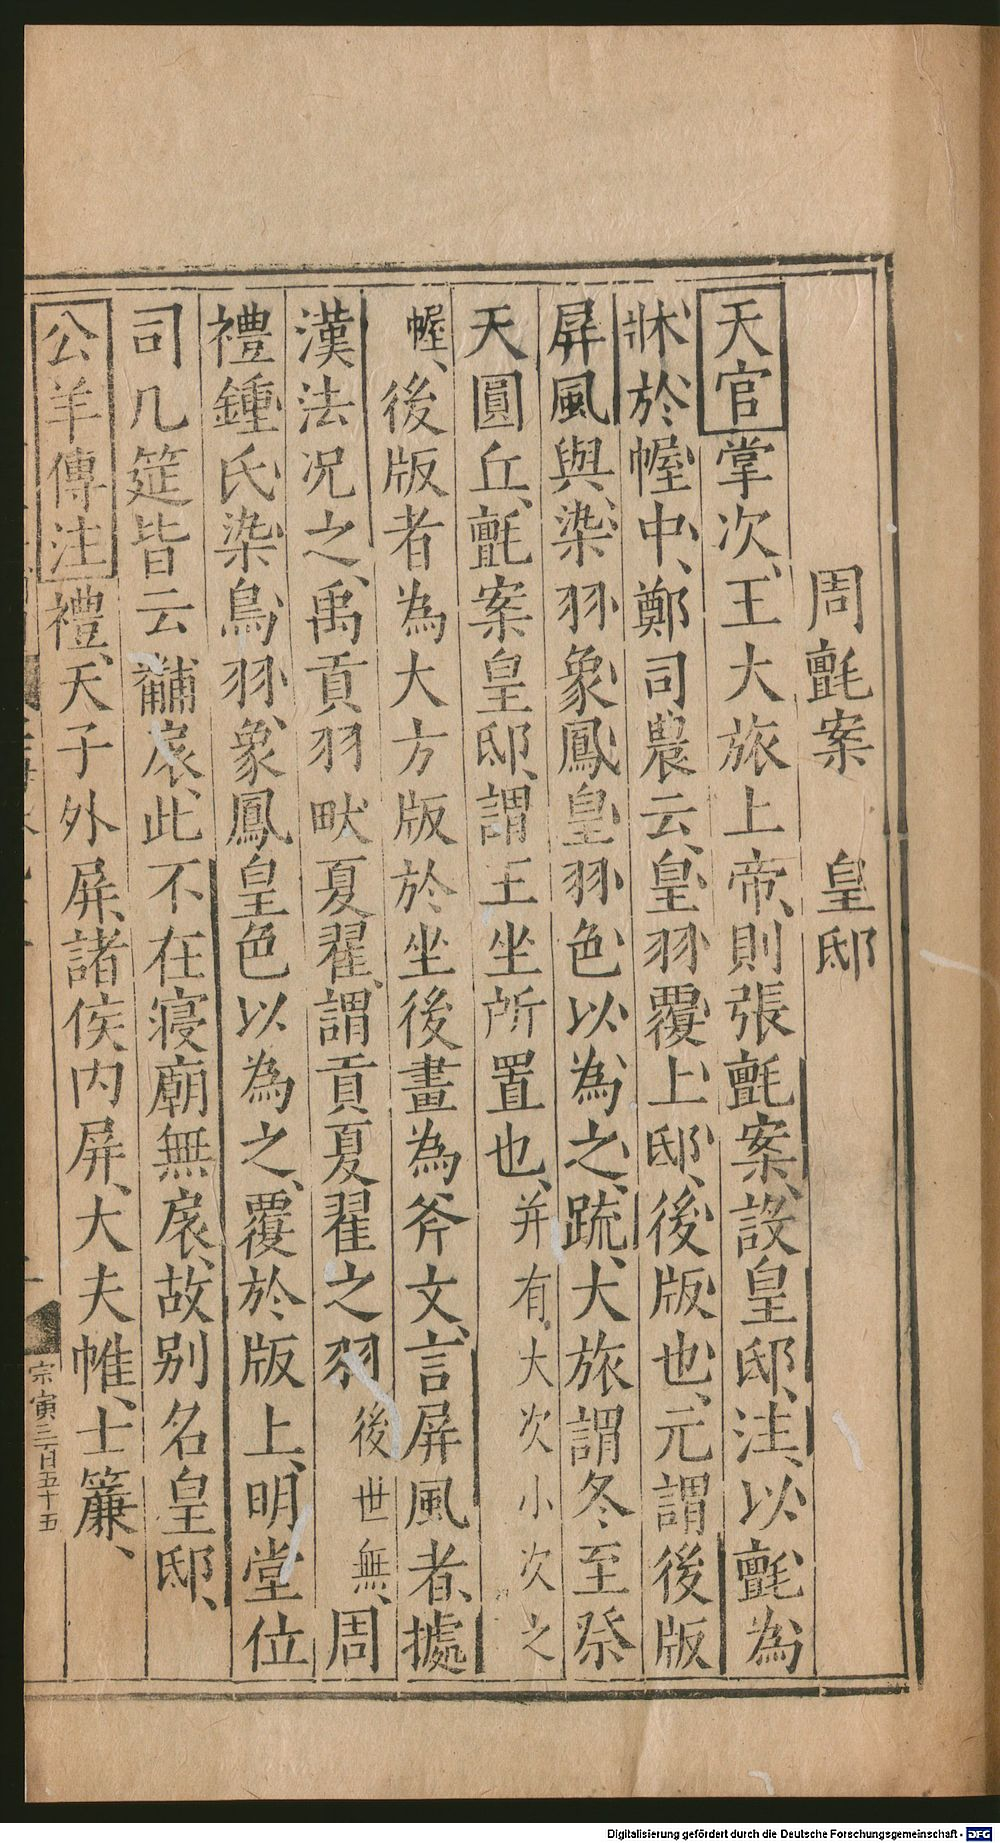 周氊案　皇邸
天官掌次、王大旅上帝、則張氊案、設皇邸、注、以氊為
牀於幄中、鄭司農云、皇羽覆上、邸、後版也、元謂後版
屏風與、染羽象鳳皇羽色以為之、疏、大旅謂冬至祭
天圓丘、氊案皇邸、謂王坐所置也、并有大次小次之
幄、後版者為大方版於坐後畫為斧文、言屏風者、據
漢法况之、禹貢羽畎夏翟、謂貢夏翟之羽後世無、周
禮鍾氏染鳥羽、象鳳皇色以為之、覆於版上、明堂位
司几筵皆云黼扆、此不在寝廟無扆、故别名皇邸、
公羊傳注禮、天子外屏、諸侯内屏、大夫帷、士簾、
宗寅三百五十五
Digitalisierung gefördert durch die Deutsche Forschungsgemeinschaft - DFG